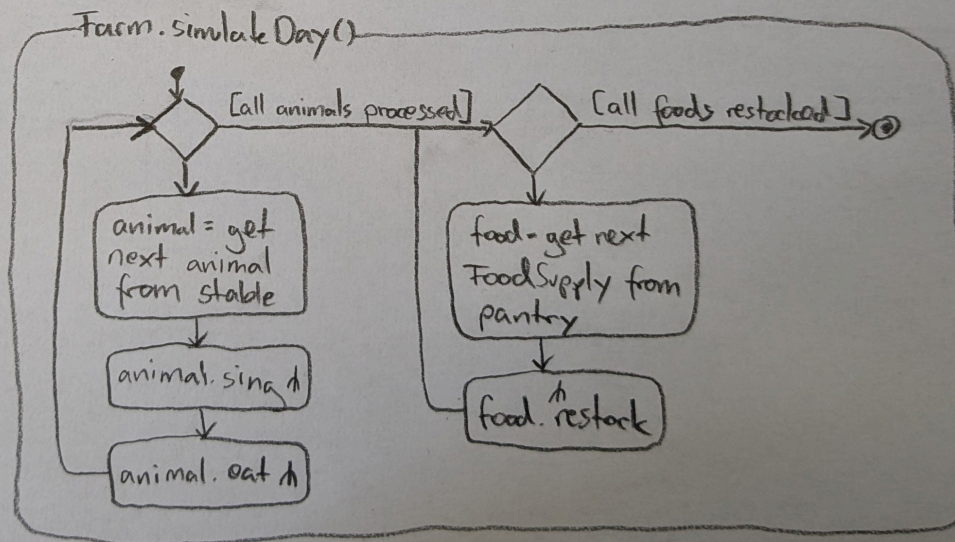 Farm.simulateDay()
[all animals processed]
[all foods restocked]
animal = get
next animal
from stable
animal.sing
animal.eat
food = get next
FoodSupply from
pantry
food.restock